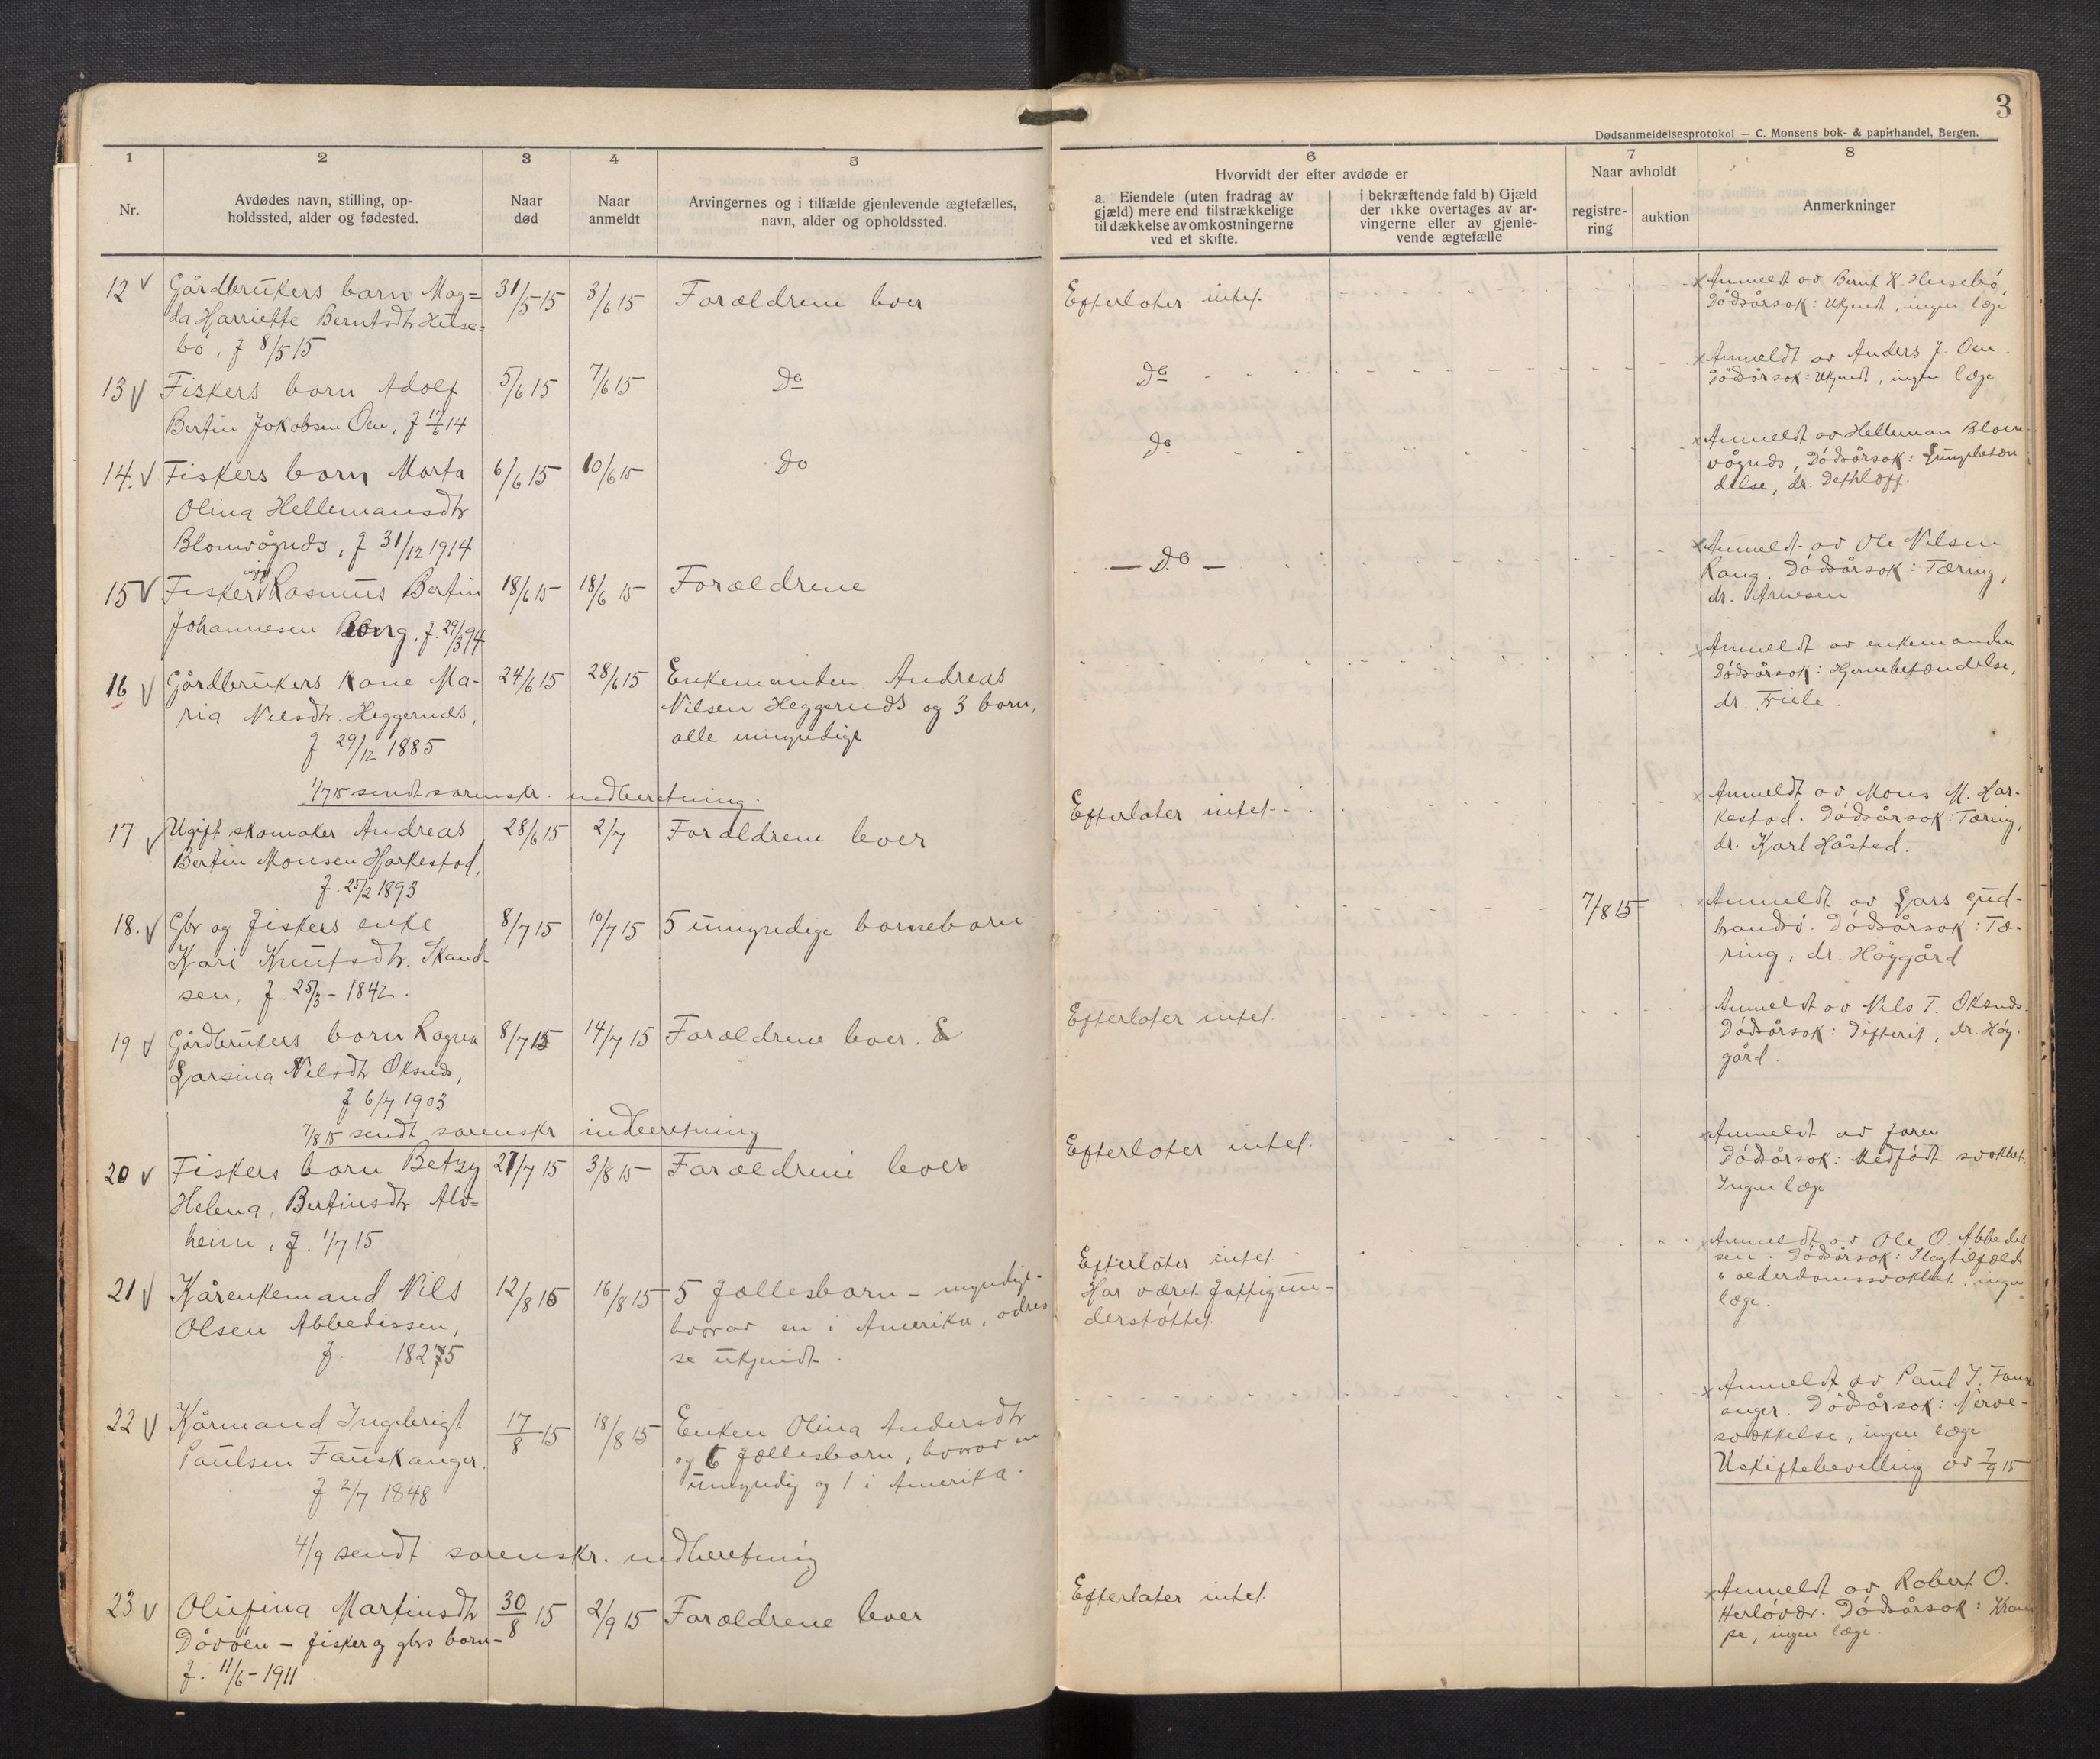 3
Dødsanmeldelsesprotokol — C. Monsens bok- & papirhandel, Bergen.
1 2 3 4 5
Nr.
Avdødes navn, stilling, op-
holdssted, alder og fødested.
Naar
død
Naar
anmeldt
Arvingernes og i tilfælde gjenlevende ægtefælles,
navn, alder og opholdssted.
6 7 8
Hvorvidt der efter avdøde er
a. Eiendele (uten fradrag av
gjæld) mere end tilstrækkelige
til dækkelse av omkostningerne
ved et skifte.
i bekræftende fald b) Gjæld
der ikke overtages av ar-
vingerne eller av gjenle-
vende ægtefælle
Naar avholdt
registre-
ring
auktion
Anmerkninger
12 Gårdbrukers barn Mag= 31/5 15 3/6 15 Forældrene lever
da Harriette Berntsdtr Huse=
bö, f 8/5 15
Efterlater intet.
Anmeldt av Bernt K. Husebö,
Dödsårsak: Ukjendt, ingen læge
13 Fiskers barn Adolf 5/6 15 7/6 15 Do
Bertin Jakobsen Oen, f 17/6 14
Do
Anmeldt av Anders J. Oen.
Dödsårsak: Ukjendt, ingen læge
14. Fiskers barn Marta 6/6 15 10/6 15 Do
Olina Hellemansdtr
Blomvågnds, f 31/12 1914
Do
Anmeldt av Helleman Blom-
vågnds, Dödsårsak: Lungebetæn
delse, dr. Dethloff.
15 Fisker ugift Rasmus Bertin 18/6 15 18/6 15 Forældrene
Johannesen Rong, f. 29/3 94
— Do —
Anmeldt av Ole Nilsen
Rong. Dödsårsak: Tæring,
dr. Arnesen
16 Gårdbrukers kone Ma- 24/6 15 28/6 15 Enkemanden Andreas
ria Nilsdtr. Heggernds,
f 29/12 1885
Nilsen Heggernds og 3 barn,
alle umyndige
Anmeldt av enkemanden
Dödsårsak: Hjernebetændelse,
dr. Friele.
1/7 15 sendt sorenskr. indberetning.
17 Ugift skomaker Andreas 28/6 15 2/7 Forældrene lever
Bertin Monsen Harkestad,
f. 25/2 1893
Efterlater intet
Anmeldt av Mons M. Har-
kestad. Dödsårsak: Tæring,
dr. Karl Håstad.
18. Gbr og fiskers enke 8/7 15 10/7 15 5 umyndige barnebarn
Kari Knutsdtr. Skand-
sen, f. 25/3 - 1842.
7/8 15
Anmeldt av Lars Gud-
brandsö. Dödsårsak: Tæ-
ring, dr. Höygård
19 Gårdbrukers barn Ragna 8/7 15 14/7 15 Forældrene lever.
Larsina Nilsdtr Oksnds,
f 6/7 1903
Efterlater intet.
Anmeldt av Nils T. Oksnds.
Dödsårsak: Difterit, dr. Höy-
gård.
7/8 15 sendt sorenskr indberetning
20 Fiskers barn Betzy 27/7 15 3/8 15 Forældrene lever
Helena, Bertinsdtr Alv=
heim, f. 1/7 15
Efterlater intet.
Anmeldt av faren
Dödsårsak: Medfödt svakhet.
Ingen læge
21 Kårenkemand Nils 12/8 15 16/8 15 5 fællesbarn - myndige-
Olsen Abbedissen,
f. 1825
hvorav en i Amerika, adres
se ukjendt.
Efterlater intet.
Har været fattigun-
derstöttet
Anmeldt av Ole O. Abbedis
sen. Dödsårsak: Slagtilfælde
& alderdomssvakhet, ingen
læge.
22 Kårmand Ingebrigt 17/8 15 18/8 15 Enken Olina Andersdtr
Paulsen Fauskanger.
f 2/7 1848
og 6 fællesbarn, hvorav en
umyndig og 1 i Amerika.
Anmeldt av Paul I. Fausk
anger. Dödsårsak: Nerve-
svækkelse, ingen læge
Uskiftebevilling av 7/9 15
4/9 sendt sorenskr. indberetning
23 Olufina Martinsdtr 30/8 15 2/9 15 Forældrene lever
Dåvöen - fisker og gbrs barn-
f. 11/6 - 1911
Efterlater intet.
Anmeldt av Robert O.
Herlövær. Dödsårsak: Kram
pe, ingen læge.